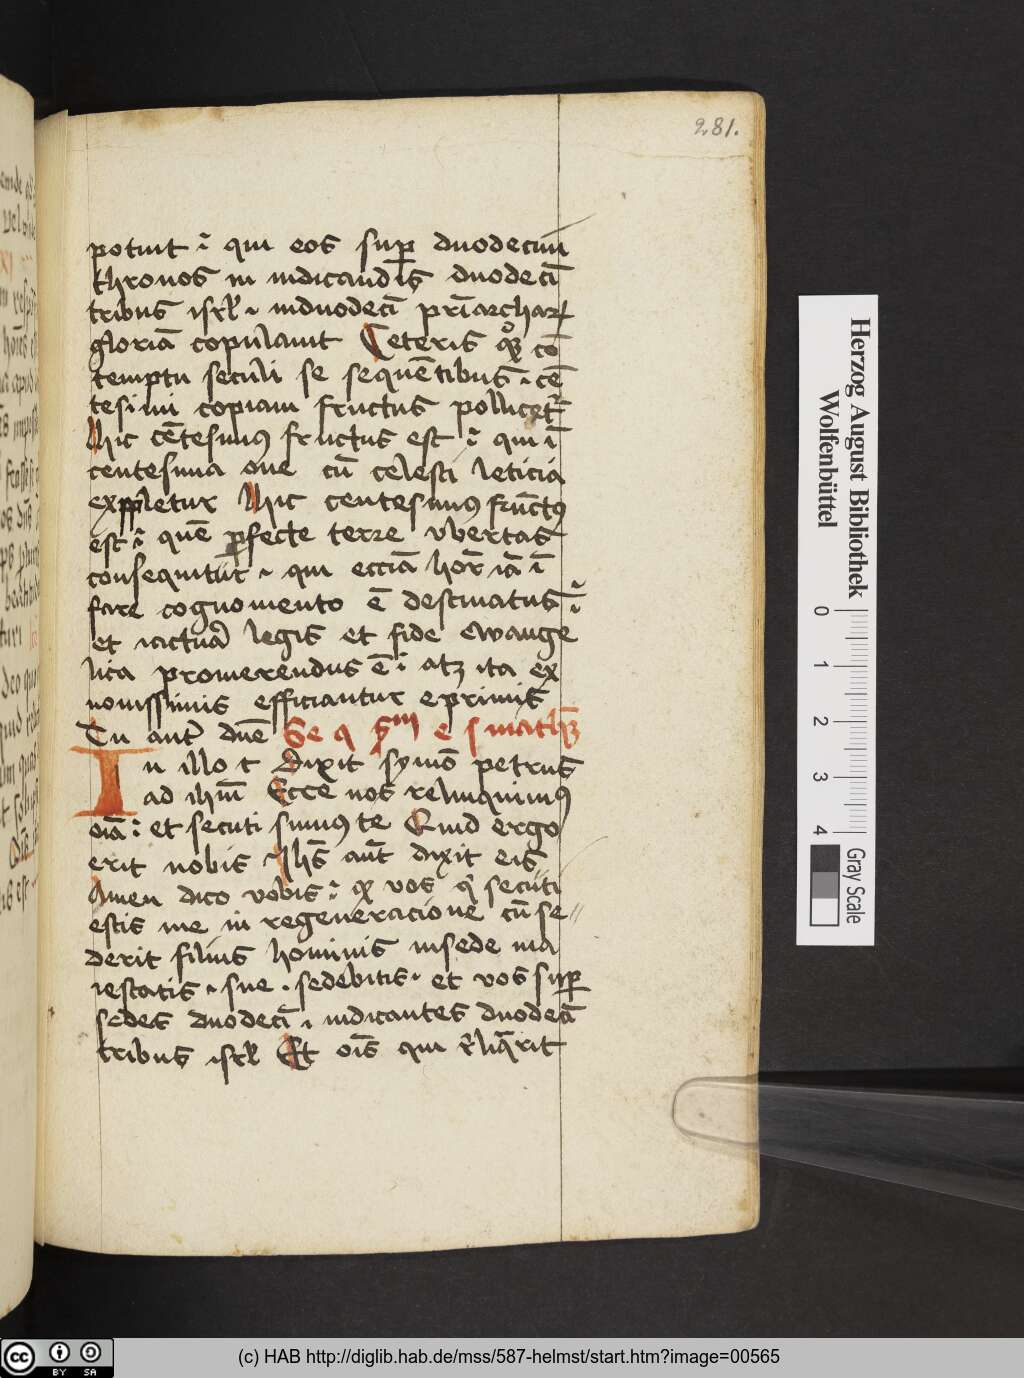 281.
potuit ⁊ qui eos sup duodecim
thronos in iudicandis duodecī
tribus isrl ⁊ induodecī pr̄iarchar
gloriā copulauit Ceteris qꝫ cō
temptu seculi se sequētibus ⁊ cē
tesimi copiam fructus pollicet
Hic cētesimꝰ fructus est ⁊ qui ī
centesima oue cū celesti leticia
expletur Hic centesimꝰ fructꝰ
est ⁊ quē perfecte terre vbertas
consequitur ⁊ qui ecciā hor̄ iā ī
fare cognomento ē destinatus
et iactura legis et fide ewange
lica promerendus ē atꝫ ita ex
nouissimis efficiantur e primis
Tu aut dnē Se q s̄m e s math
In illo t dixit symō petrus
ad ihm̄ Ecce nos relinquimꝰ
oīa et secuti sumꝰ te Quid ergo
erit nobis Ihs̄ aūt dixit eis
Amen dico vobis ⁊ qꝫ vos q secuti
estis me in regeneracione cū se
derit filius hominis insede ma
iestatis sue sedebitis et vos sup
sedes duodecī ⁊ iudicantes duodecī
tribus isrl Et oīs qui rliq̄rit
Herzog August Bibliothek
Wolfenbüttel
0 1 2 3 4
Gray Scale
cc BY SA
(c) HAB http://diglib.hab.de/mss/587-helmst/start.htm?image=00565